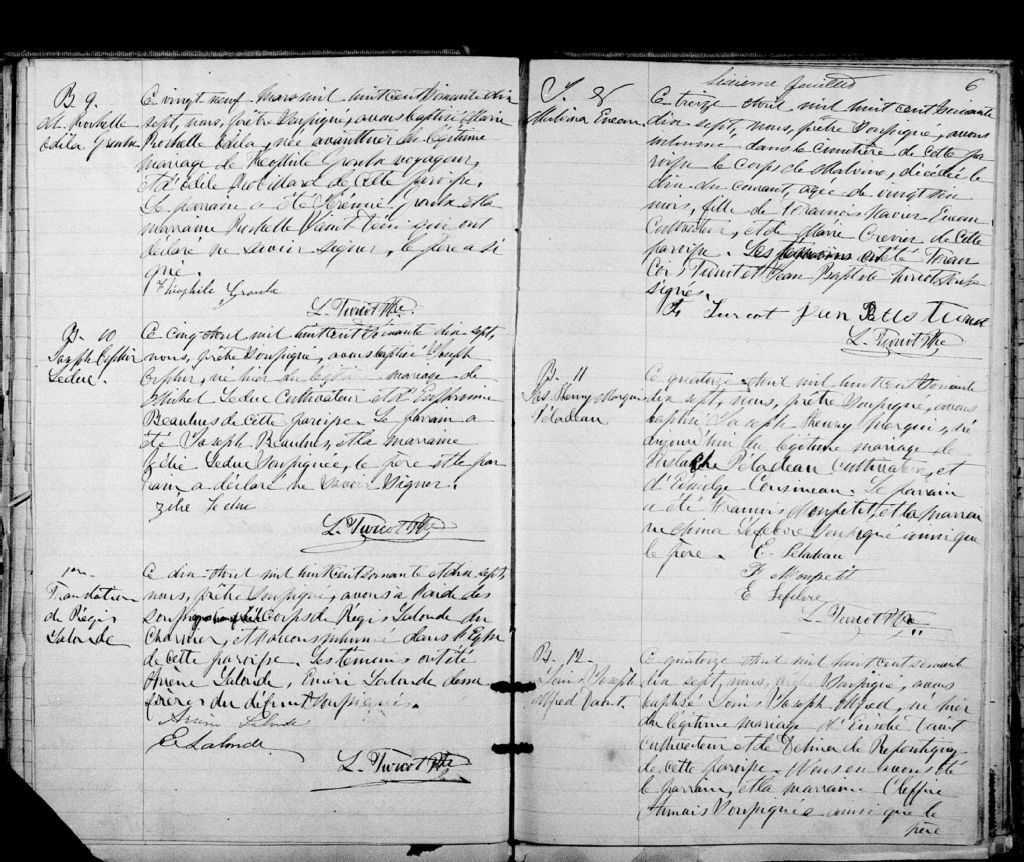 B 9.
M. Rochelle
Odila Groulx
Ce vingt neuf Mars mil huit cent soixante dix
sept, nous, prêtre soussigné, avons baptisé Marie
Rochelle Odila, née avant hier du légitime
mariage de Théophile Groulx voyageur,
et d'Odile Robidard de cette paroisse.
Le parrain a été Groulx et la
marraine Rochelle qui ont
déclaré ne savoir signer, le père a si
gné.
Théophile Groulx
L. Turcot Ptre.
B. 10
Joseph
Leduc.
Ce cinq Avril mil huit cent soixante dix sept,
nous, prêtre soussigné, avons baptisé Joseph
né hier du légitime mariage de
Michel Leduc Cultivateur et d'Euphrosine
Beaulnes de cette paroisse. Le parrain a
été Joseph Beaulnes, et la marraine
Zélie Leduc soussignée, le père et le par
rain a déclaré ne savoir signer.
Zélie Leduc
L. Turcot Ptre
Translation
de Régis
Lalonde
Ce dix Avril mil huit cent soixante et dix sept,
nous, prêtre soussigné, avons à
corps de Régis Lalonde du
Charnier, et l'avons inhumé dans l'Eglise
de cette paroisse. Les témoins ont été
Arsène Lalonde, Lalonde
frères du défunt soussignés.
Arsène Lalonde
E. Lalonde
L. Turcot Ptre
Sixieme feuillet
6
S. 8
Malvina
Ce treize Avril mil huit cent soixante
dix sept, nous, prêtre soussigné, avons
inhumé dans le cimetière de cette pa
roisse le corps de Malvina, décédée le
dix du courant, agée de vingt six
mois, fille de François Xavier
Cultivateur, et de Marie Crevier de cette
paroisse. Les témoins ont été Fran
çois Turcot et Jean Baptiste Turcot sous
signés.
Fr Turcot Jean Batis Turcot
L. Turcot Ptre
B. 11
Jos. Henry
Péladeau
Ce quatorze Avril mil huit cent soixante
dix sept, nous, prêtre soussigné, avons
baptisé Joseph Henry né
aujourd'hui du légitime mariage de
Péladeau Cultivateur, et
d' Cousineau. Le parrain
a été François Monpetit, et la marrai
ne Lefebvre soussigné ainsi que
le père. E. Peladeau
F Monpetit
E Lefebvre
L. Turcot Ptre
B. 12
Louis Joseph
Alfred
Ce quatorze Avril mil huit cent soixante
dix sept, nous, prêtre soussigné, avons
baptisé Louis Joseph Alfred, né hier
du légitime mariage d'
Cultivateur et de de Repentigny
de cette paroisse. Nous en avons été
le parrain, et la marraine
soussignée ainsi que le
père